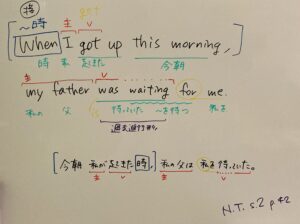 接
～時 主 got
V
When I got up this morning,
時 私 起きた 今朝
主 V
my father was waiting for me.
私の 父 待っていた ～を待つ 私を
過去進行形
[今朝 私が 起きた 時,] 私の父は 私を待っていた。
主 V 主 V
N.T. s.2 p.42